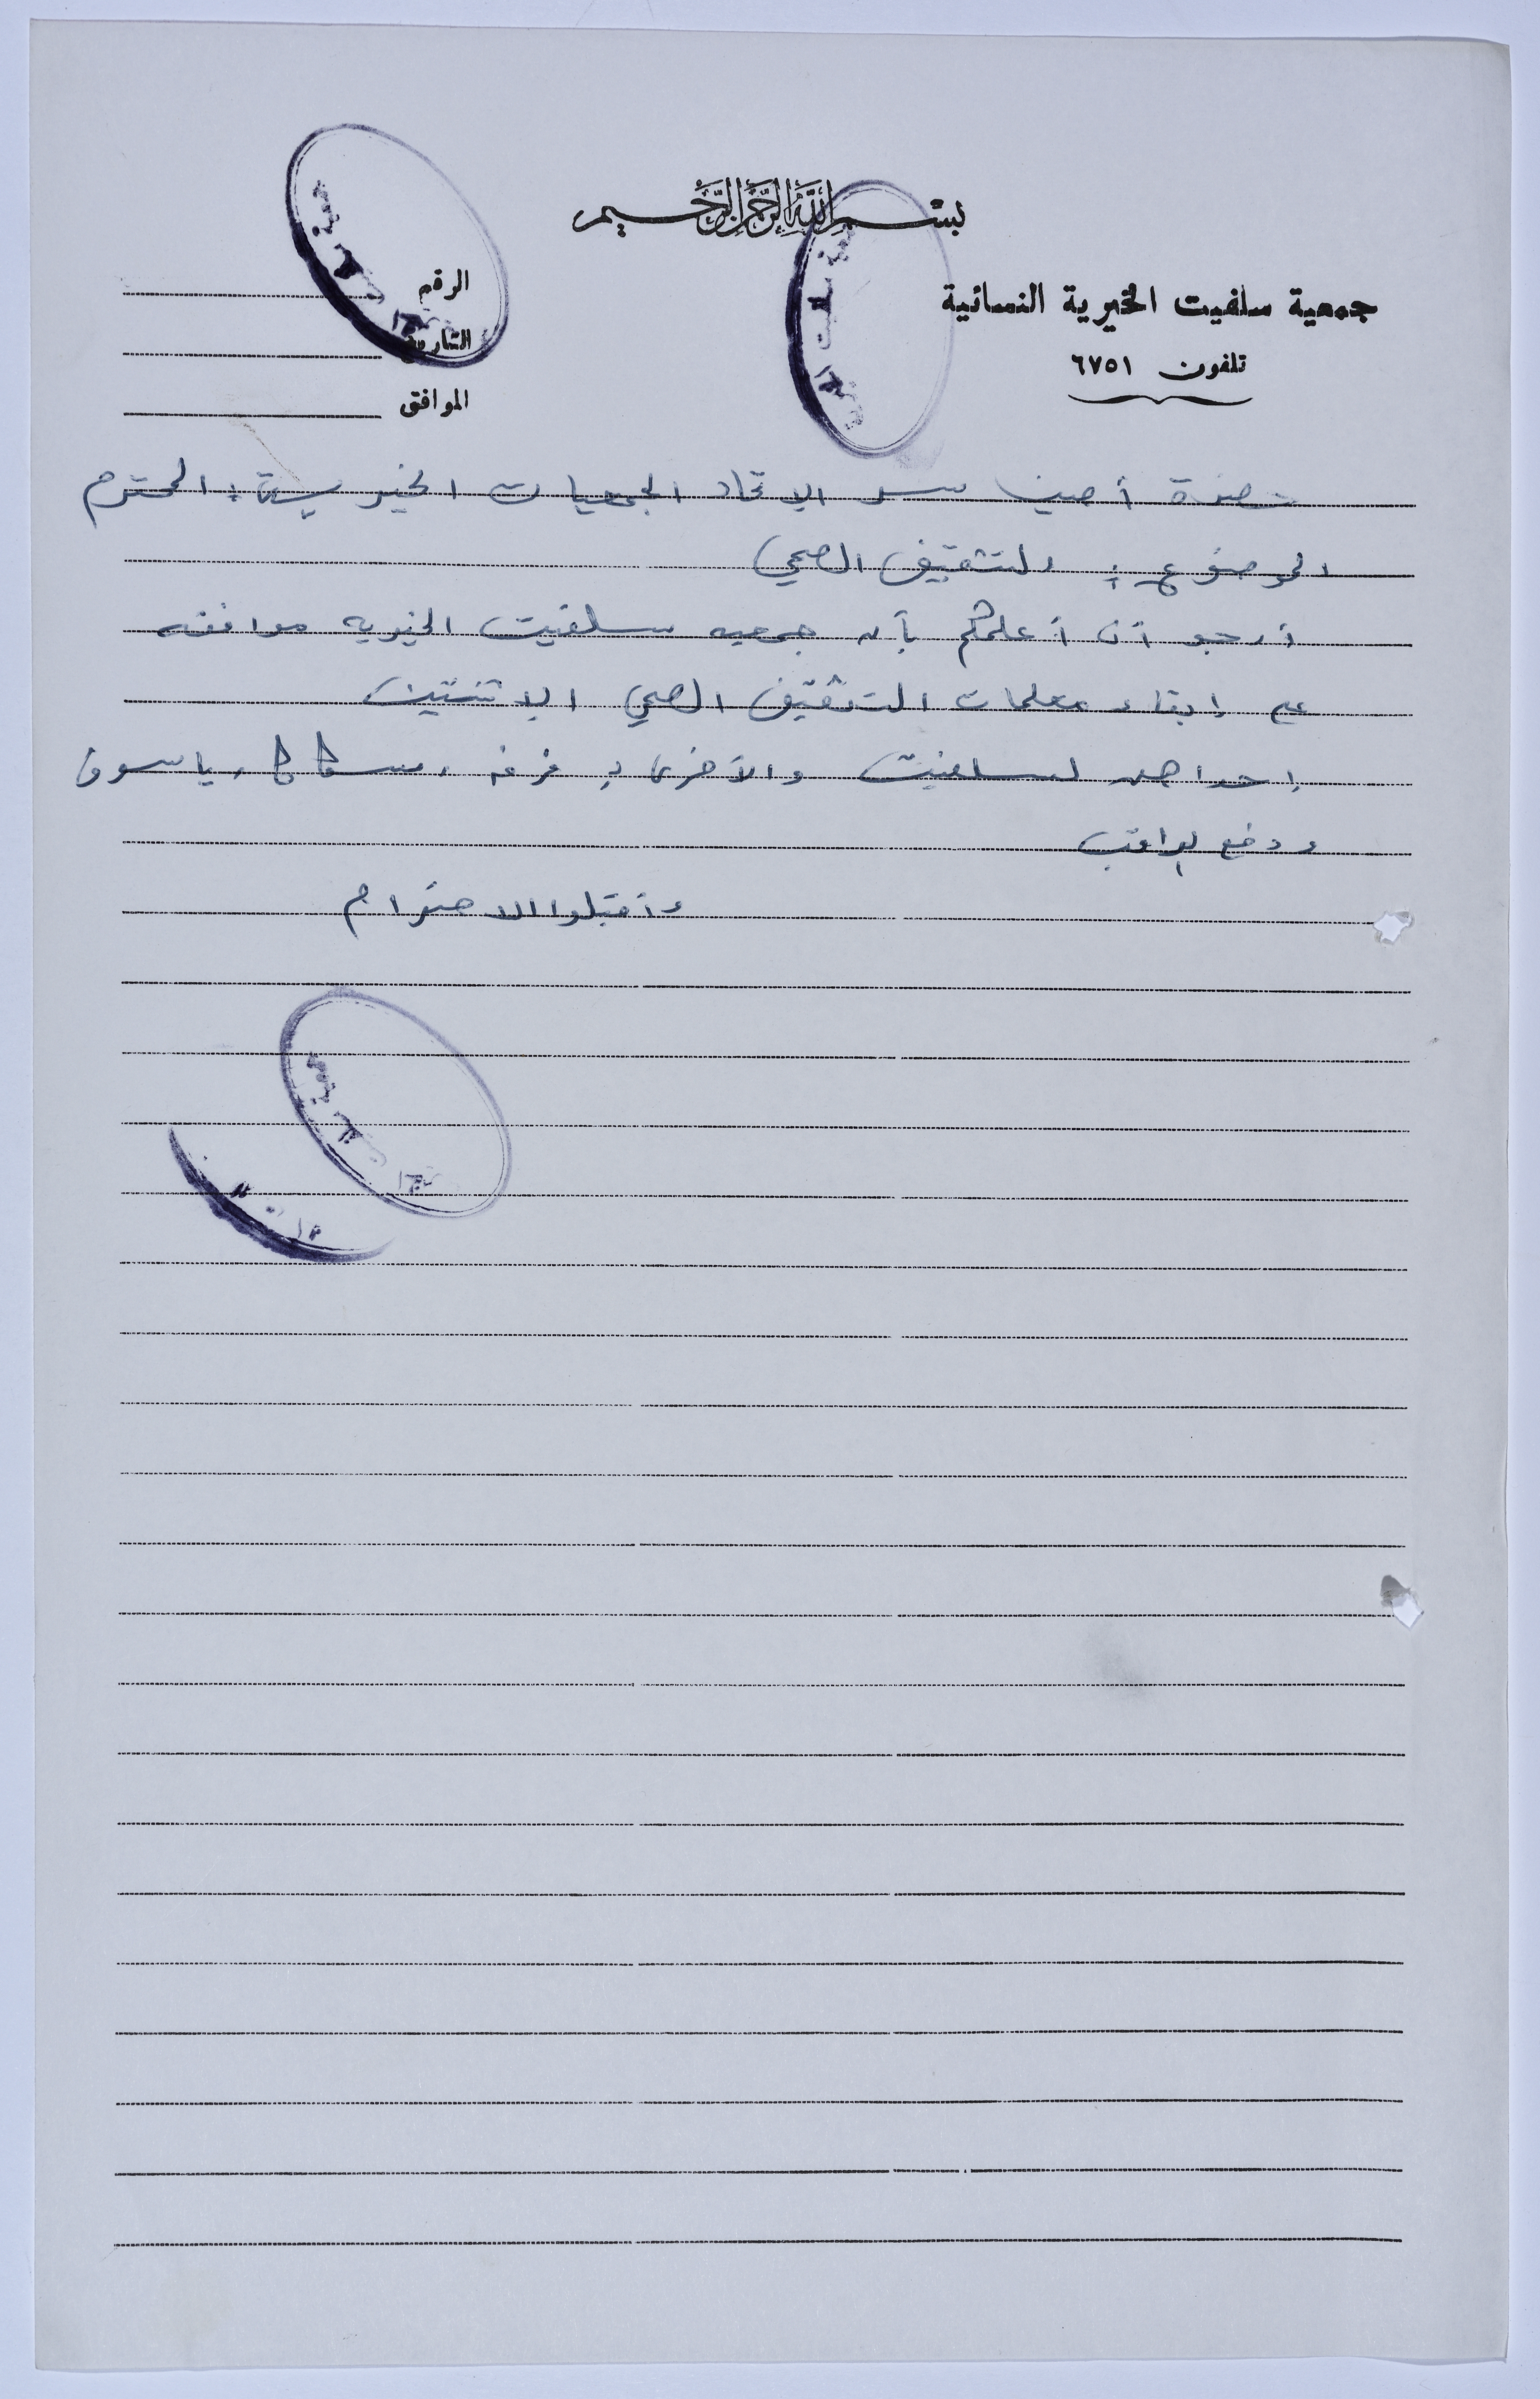 بسم الله الرحمن الرحيم
جمعية سلفيت الخيرية النسائية
تلفون ٦٧٥١
الرقم
التاريخ
الموافق
حضرة أمين سر الاتحاد الجمعيات الخيرية : المحترم
الموضوع : التثقيف الصحي
أرجو أن أعلمكم بأن جمعيه سلفيت الخيريه موافقه
على إبقاء معلمات التثقيف الصحي الاثنتين
احداهن لسلفيت والأخرى لـ فرخه ، ياسوف
ودفع الراتب
وأقبلوا الاحترام
جمعية سلفيت